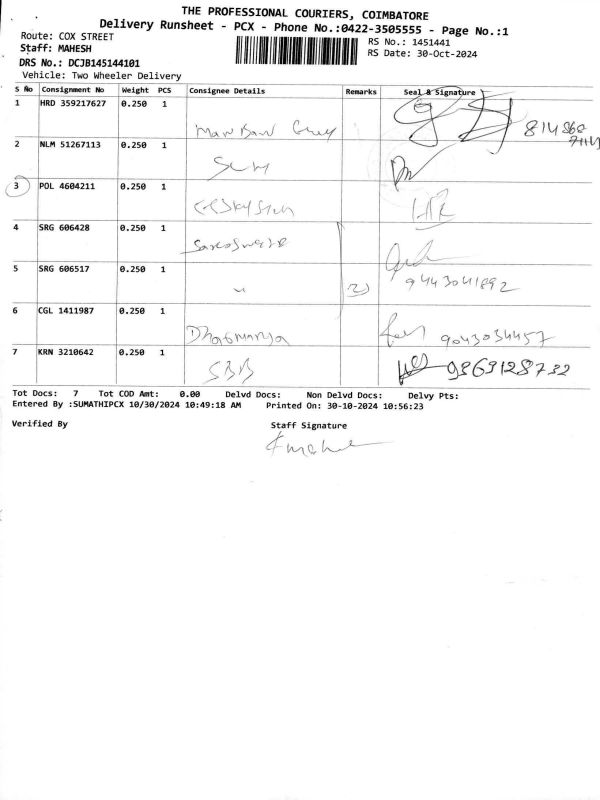 THE PROFESSIONAL COURIERS, COIMBATORE
Delivery Runsheet - PCX - Phone No.:0422-3505555 - Page No.:1
Route: COX STREET
RS No.: 1451441
Staff: MAHESH
RS Date: 30-Oct-2024
DRS No.: DCJB145144101
Vehicle: Two Wheeler Delivery
S No Consignment No Weight PCS Consignee Details Remarks Seal & Signature
1 HRD 359217627 0.250 1
2 NLM 51267113 0.250 1
3 POL 4604211 0.250 1
4 SRG 606428 0.250 1
5 SRG 606517 0.250 1
9443041892
6 CGL 1411987 0.250 1
9043034457
7 KRN 3210642 0.250 1
SBB
Tot Docs: 7 Tot COD Amt: 0.00 Delvd Docs: Non Delvd Docs: Delvy Pts:
Entered By :SUMATHIPCX 10/30/2024 10:49:18 AM Printed On: 30-10-2024 10:56:23
Verified By Staff Signature